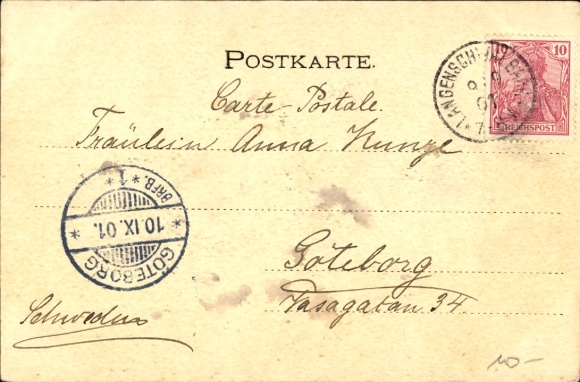 POSTKARTE.
Carte-Postale.
Fräulein Anna Kunze
Göteborg
Vasagatan 34.
Schweden
10
REICHSPOST
GÖTEBORG
10.IX.01.
*1* BRFB.
10-